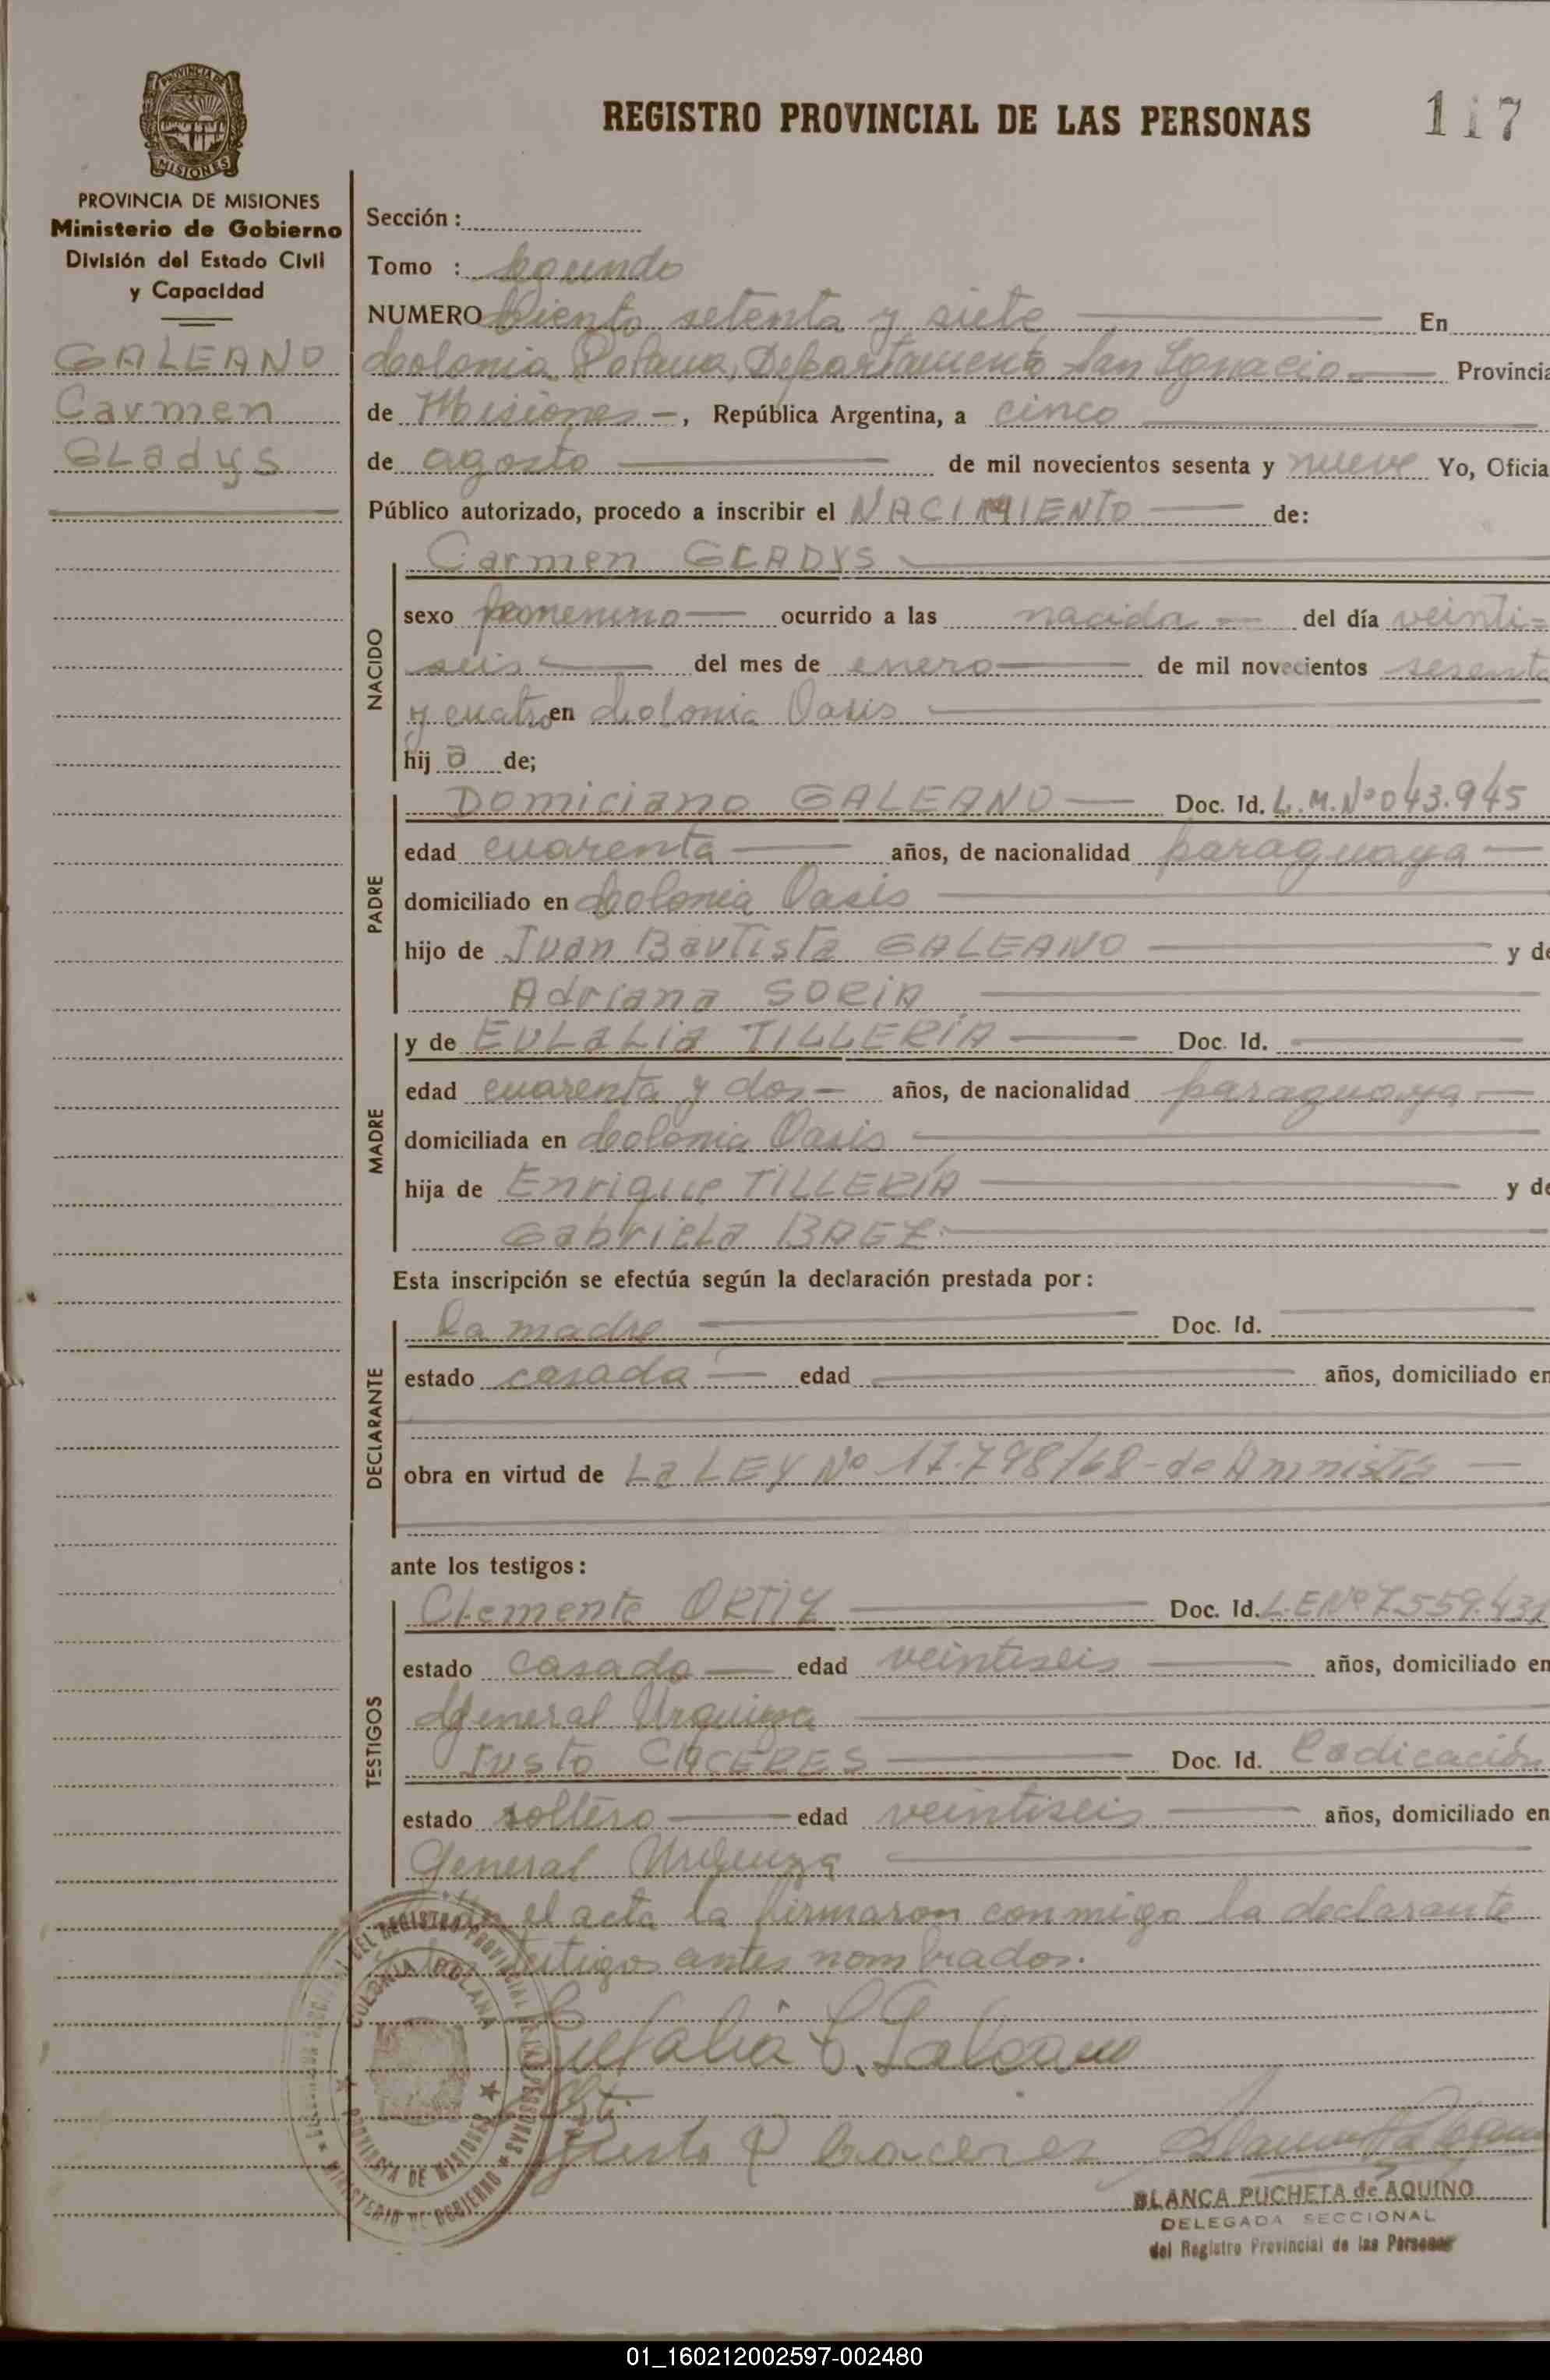 REGISTRO PROVINCIAL DE LAS PERSONAS
117
PROVINCIA DE MISIONES
PROVINCIA DE MISIONES
Ministerio de Gobierno
División del Estado Civil
y Capacidad
GALEANO
Carmen
GLadys
Sección :
Tomo : Segundo
NUMERO Ciento setenta y siete En
Colonia Polana, Departamento San Ignacio Provincia
de Misiones -, República Argentina, a cinco
de agosto de mil novecientos sesenta y nueve Yo, Oficia
Público autorizado, procedo a inscribir el NACIMIENTO de:
NACIDO
Carmen GLADYS
sexo femenino ocurrido a las nacida del día veinti=
seis del mes de enero de mil novecientos sesenta
y cuatro en Colonia Oasis
hij a de;
PADRE
Domiciano GALEANO Doc. Id. L.M.Nº043.945
edad cuarenta años, de nacionalidad paraguaya
domiciliado en Colonia Oasis
hijo de Juan Bautista GALEANO y de
Adriana SORIA
MADRE
y de EULaLia TILLERÍA Doc. Id.
edad cuarenta y dos años, de nacionalidad paraguaya
domiciliada en Colonia Oasis
hija de Enrique TILLERÍA y de
Gabriela BAEZ
Esta inscripción se efectúa según la declaración prestada por :
DECLARANTE
La madre Doc. Id.
estado casada edad años, domiciliado en
obra en virtud de La LEY Nº 17.798/68 - de Amnistia
ante los testigos :
TESTIGOS
Clemente ORTIZ Doc. Id. L.E Nº 7.559.431
estado casado edad veintiseis años, domiciliado en
General Urquiza
Justo CACERES Doc. Id.
estado soltero edad veintiseis años, domiciliado en
General Urquiza
el acta la firmaron conmigo la declarante
y los testigos antes nombrados.
Eulalia T. Galeano
Justo R Caceres
BLANCA PUCHETA de AQUINO
DELEGADA SECCIONAL
del Registro Provincial de las Personas
COLONIA POLANA
PROVINCIA DE MISIONES
MINISTERIO DE GOBIERNO
01_160212002597-002480